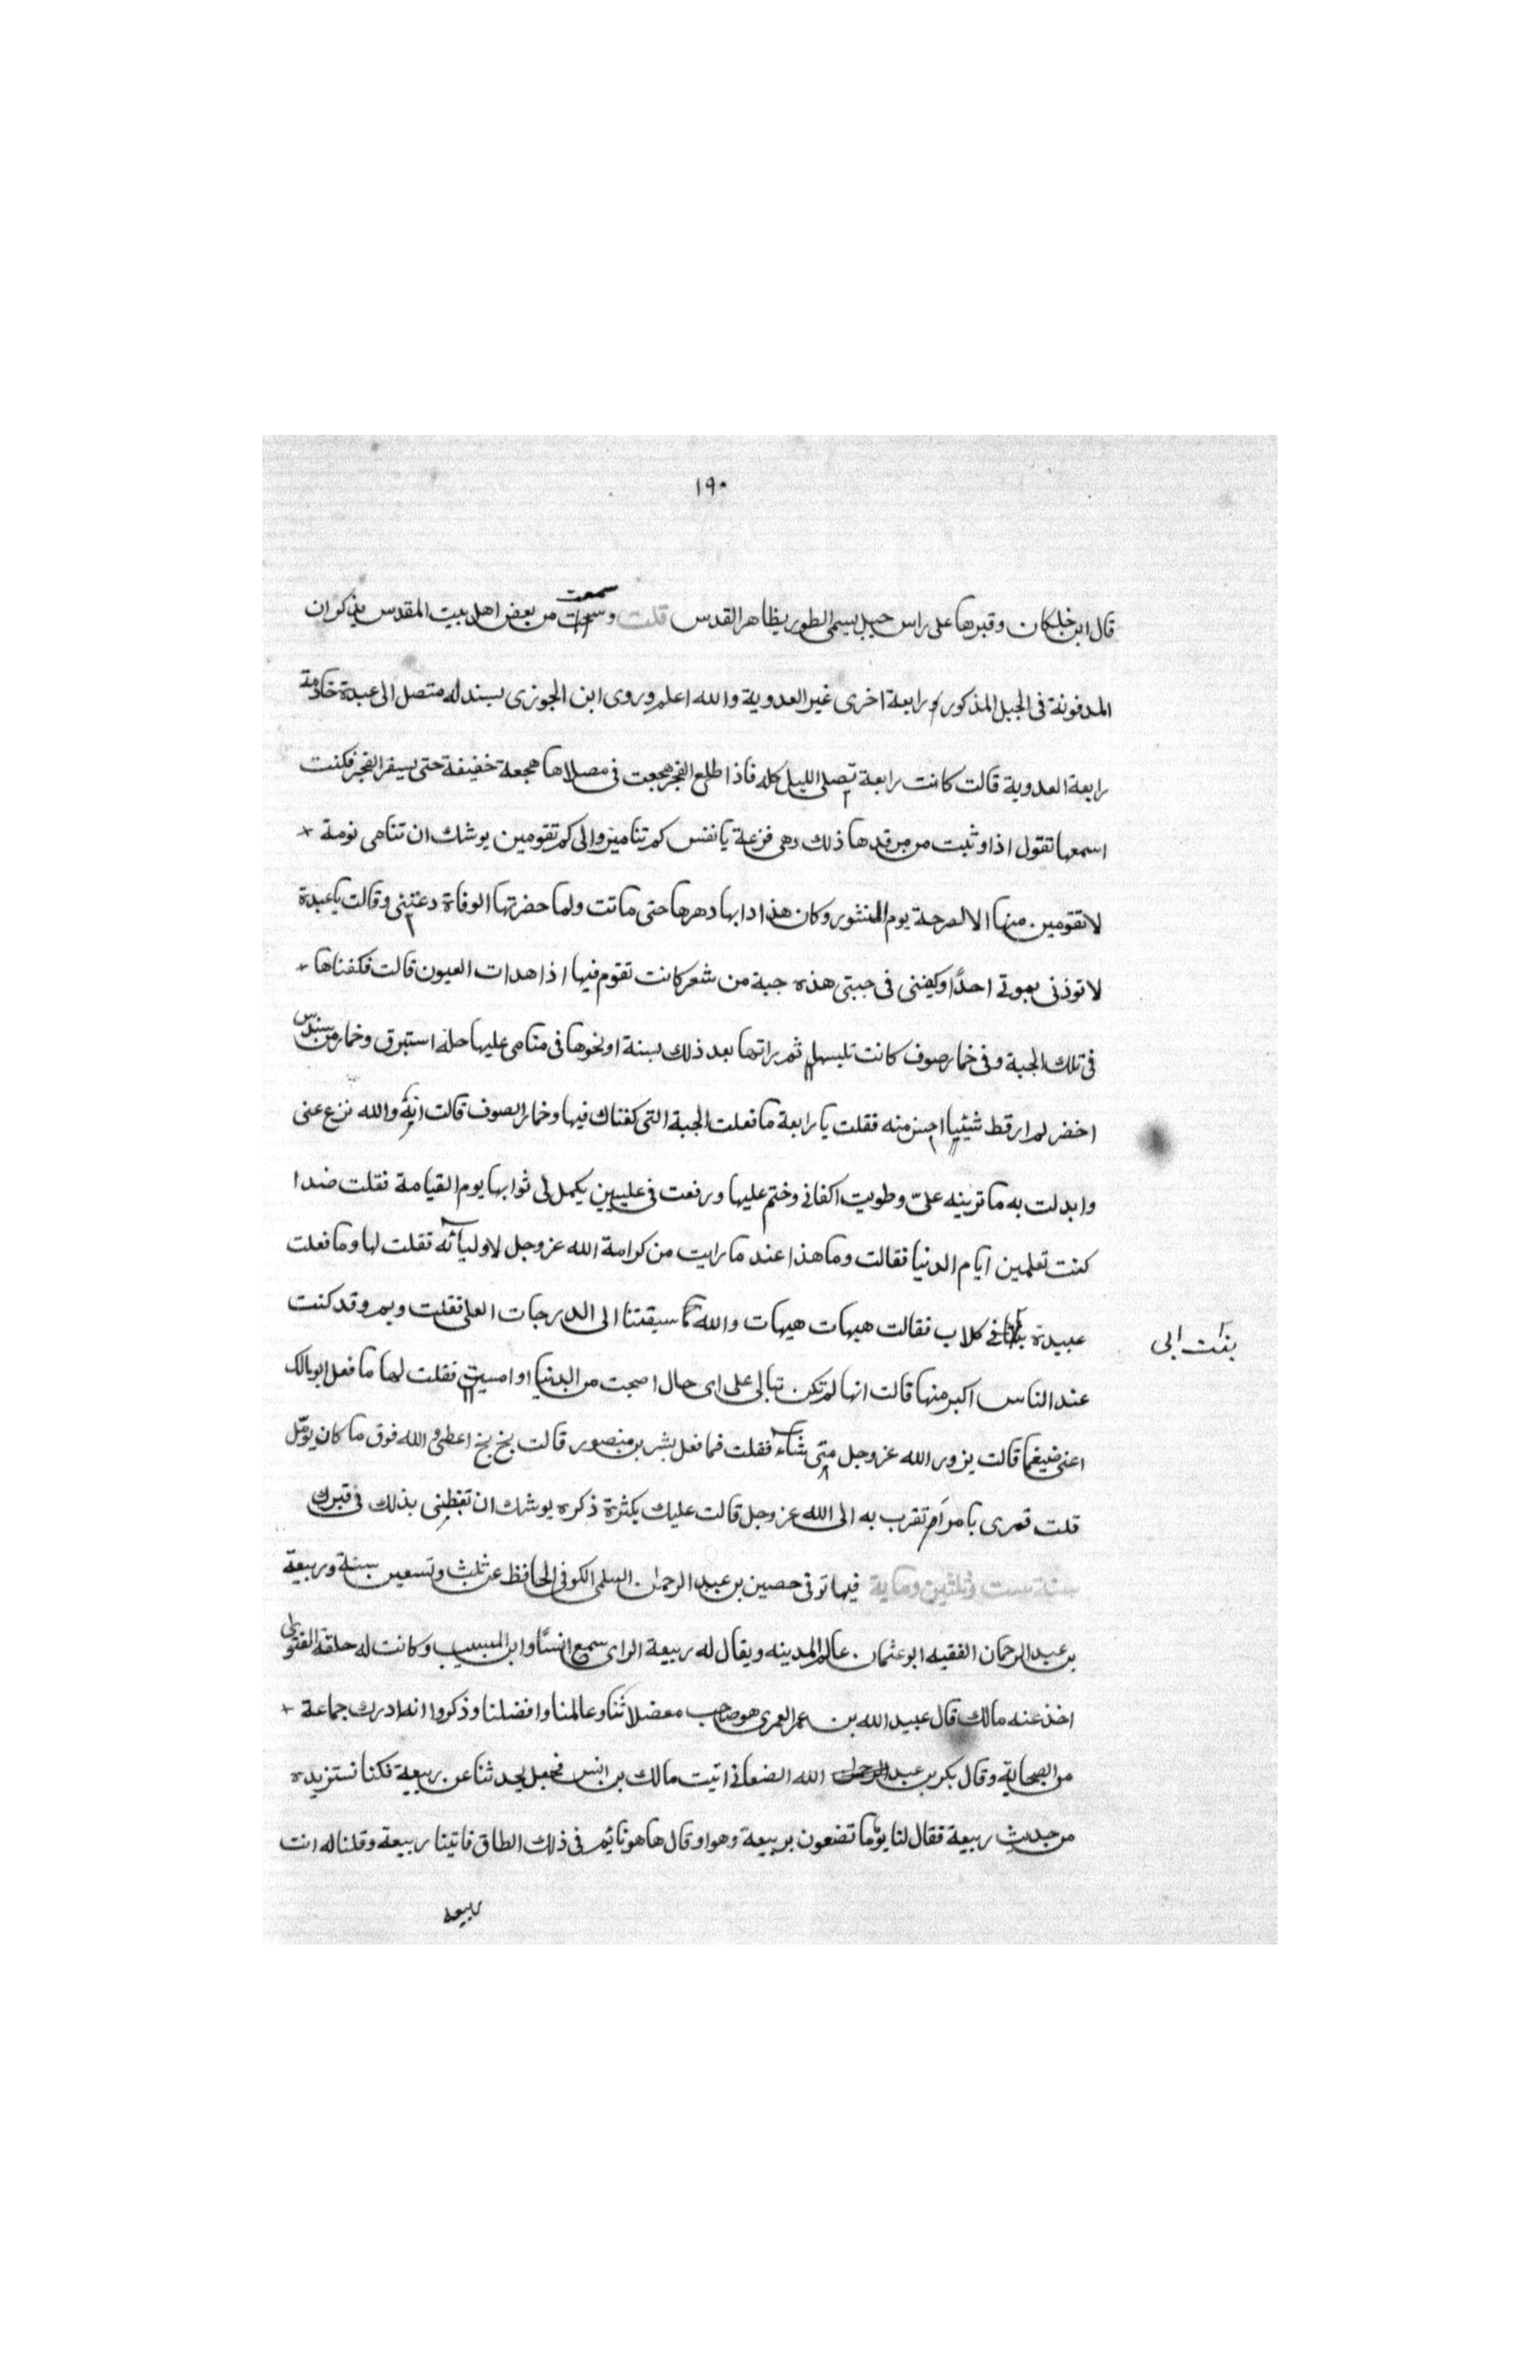 ١٩٠
قال ابن خلكان وقبرها على راس جبل يسمى الطور بظاهر القدس قلت وسمعت من بعض اهل بيت المقدس يذكر ان
المدفونة فى الجبل المذكور رابعة اخرى غير العدوية والله اعلم وروى ابن الجوزى بسند له متصل الى عبدة خادمة
رابعة العدوية قالت كانت رابعة تصلى الليل كله فاذا طلع الفجر هجعت فى مصلاها هجعة خفيفة حتى يسفر الفجر فكنت
اسمعها تقول اذا وثبت من مرقدها ذلك وهى فزعة يا نفس كم تنامين والى كم تقومين يوشك ان تنامى نومة
لا تقومين منها الا لصرخة يوم النشور وكان هذا دابها دهرها حتى ماتت ولما حضرتها الوفاة دعتنى وقالت يا عبدة
لا توذنى بموتى احدًا وكفننى فى جبتى هذه جبة من شعر كانت تقوم فيها اذا هدات العيون قالت فكفناها
فى تلك الجبة وفى خمار صوف كانت تلبسه ثم راتها بعد ذلك بسنة او نحوها فى منامى عليها حلة استبرق وخمار من سندس
اخضر لم ار قط شيئيا احسن منه فقلت يا رابعة ما فعلت الجبة التى كفناك فيها وخمار الصوف قالت انه والله نزع عنى
وابدلت به ما ترينه علىّ وطويت اكفانى وختم عليها ورفعت فى عليين يكمل لى ثوابها يوم القيامة فقلت ضدا
كنت تعلمين ايام الدنيا فقالت وما هذا عند ما رايت من كرامة الله عز وجل لاوليائه فقلت لها وما فعلت
عبيدة بنت ابى كلاب فقالت هيهات هيهات والله سبقتنا الى الدرجات العلى فقلت وبم وقد كنت
عند الناس اكبر منها قالت انها لم تكن تبالى على اى حال اصبحت من الدنيا او امسيت فقلت لها ما فعل ابو مالك
اعنى ضيغما قالت يزور الله عز وجل متى شاء فقلت فما فعل بشر بن منصور قالت بخ بخ اعطى والله فوق ما كان يؤمّل
قلت فمرى بامر اتقرب به الى الله عز وجل قالت عليك بكثرة ذكره يوشك ان تغبطنى بذلك فى قبرك
سنة ست وثلثين وماية فيها توفى حصين بن عبد الرحمان السلمى الكوفى الحافظ عن ثلث وتسعين سنة وربيعة
بن عبد الرحمان الفقيه ابو عثمان عالم المدينه ويقال له ربيعة الراى سمع انسًا وابن المسيب وكانت له حلقة الفتوى
اخذ عنه مالك قال عبيد الله بن عمر العمرى هو صاحب معضلاتنا وعالمنا وافضلنا وذكروا انه ادرك جماعة
من الصحابة وقال بكر بن عبد الله الصنعانى اتيت مالك بن انس فجعل يحدثنا عن ربيعة فكنا نستزيده
من حديث ربيعة فقال لنا يومًا تضعون بربيعة وهو او قال هاهو نايم فى ذلك الطاق فاتينا ربيعة وقلنا له انت
ربيعه
بنت ابى